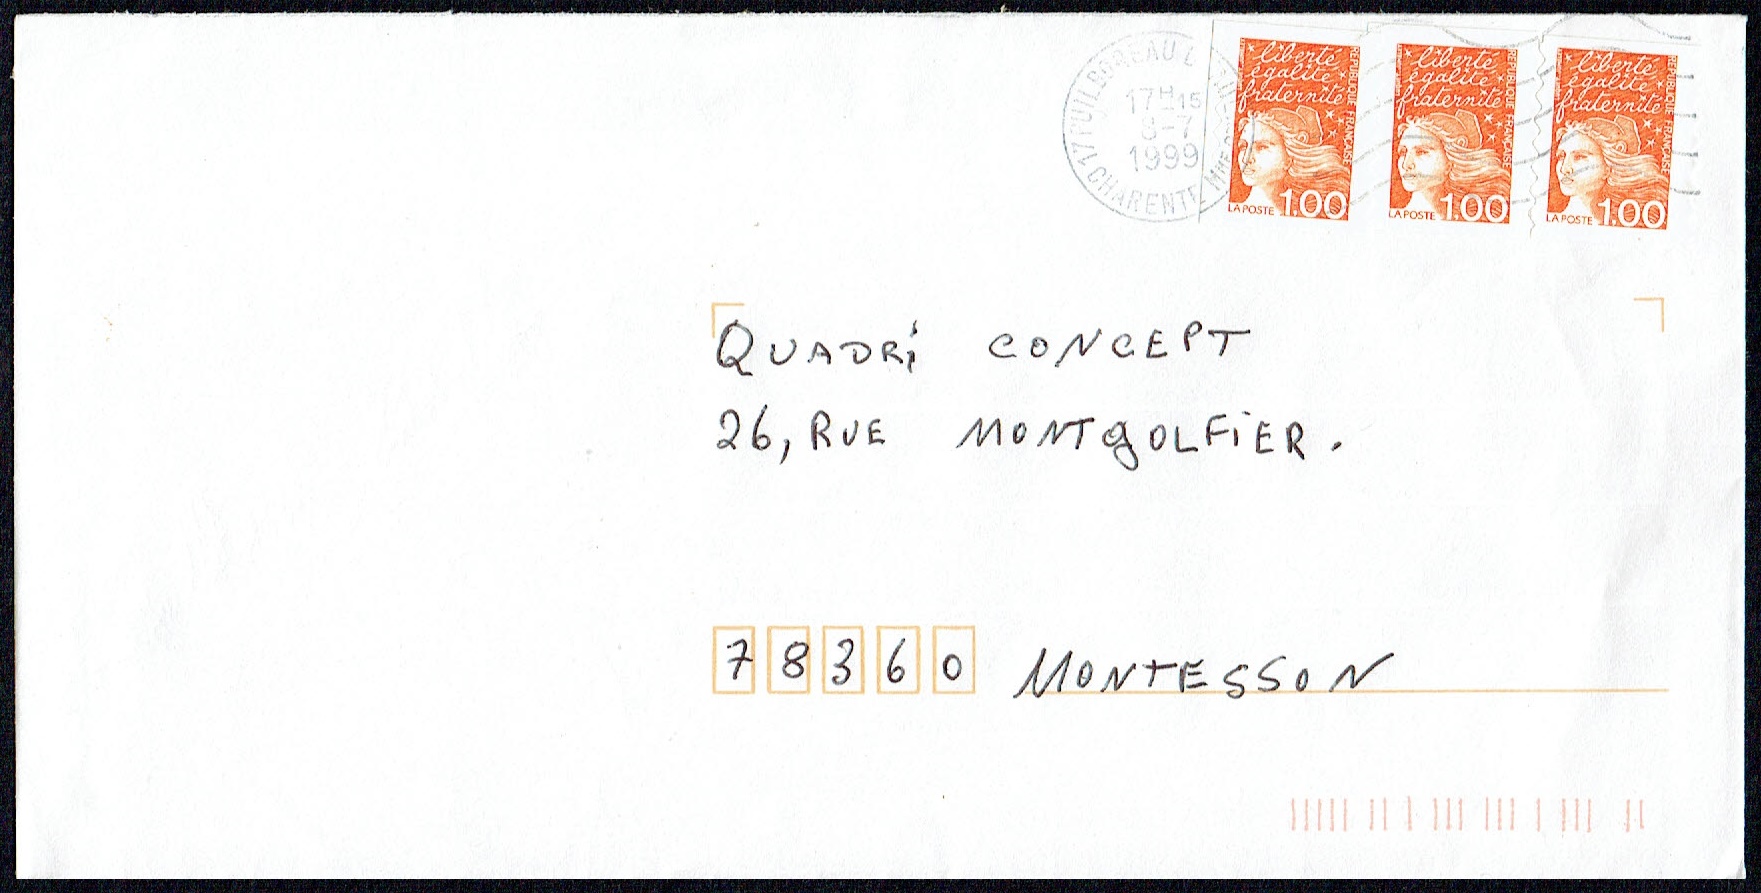 17 PUILBOREAU
CHARENTE MME
17H15
8-7
1999
liberté
égalité
fraternité
RÉPUBLIQUE FRANÇAISE
LA POSTE 1,00
liberté
égalité
fraternité
RÉPUBLIQUE FRANÇAISE
LA POSTE 1,00
liberté
égalité
fraternité
RÉPUBLIQUE FRANÇAISE
LA POSTE 1,00
QUADRi CONCEPT
26, RUE MONTgOLFiER.
78360 MONTESSON